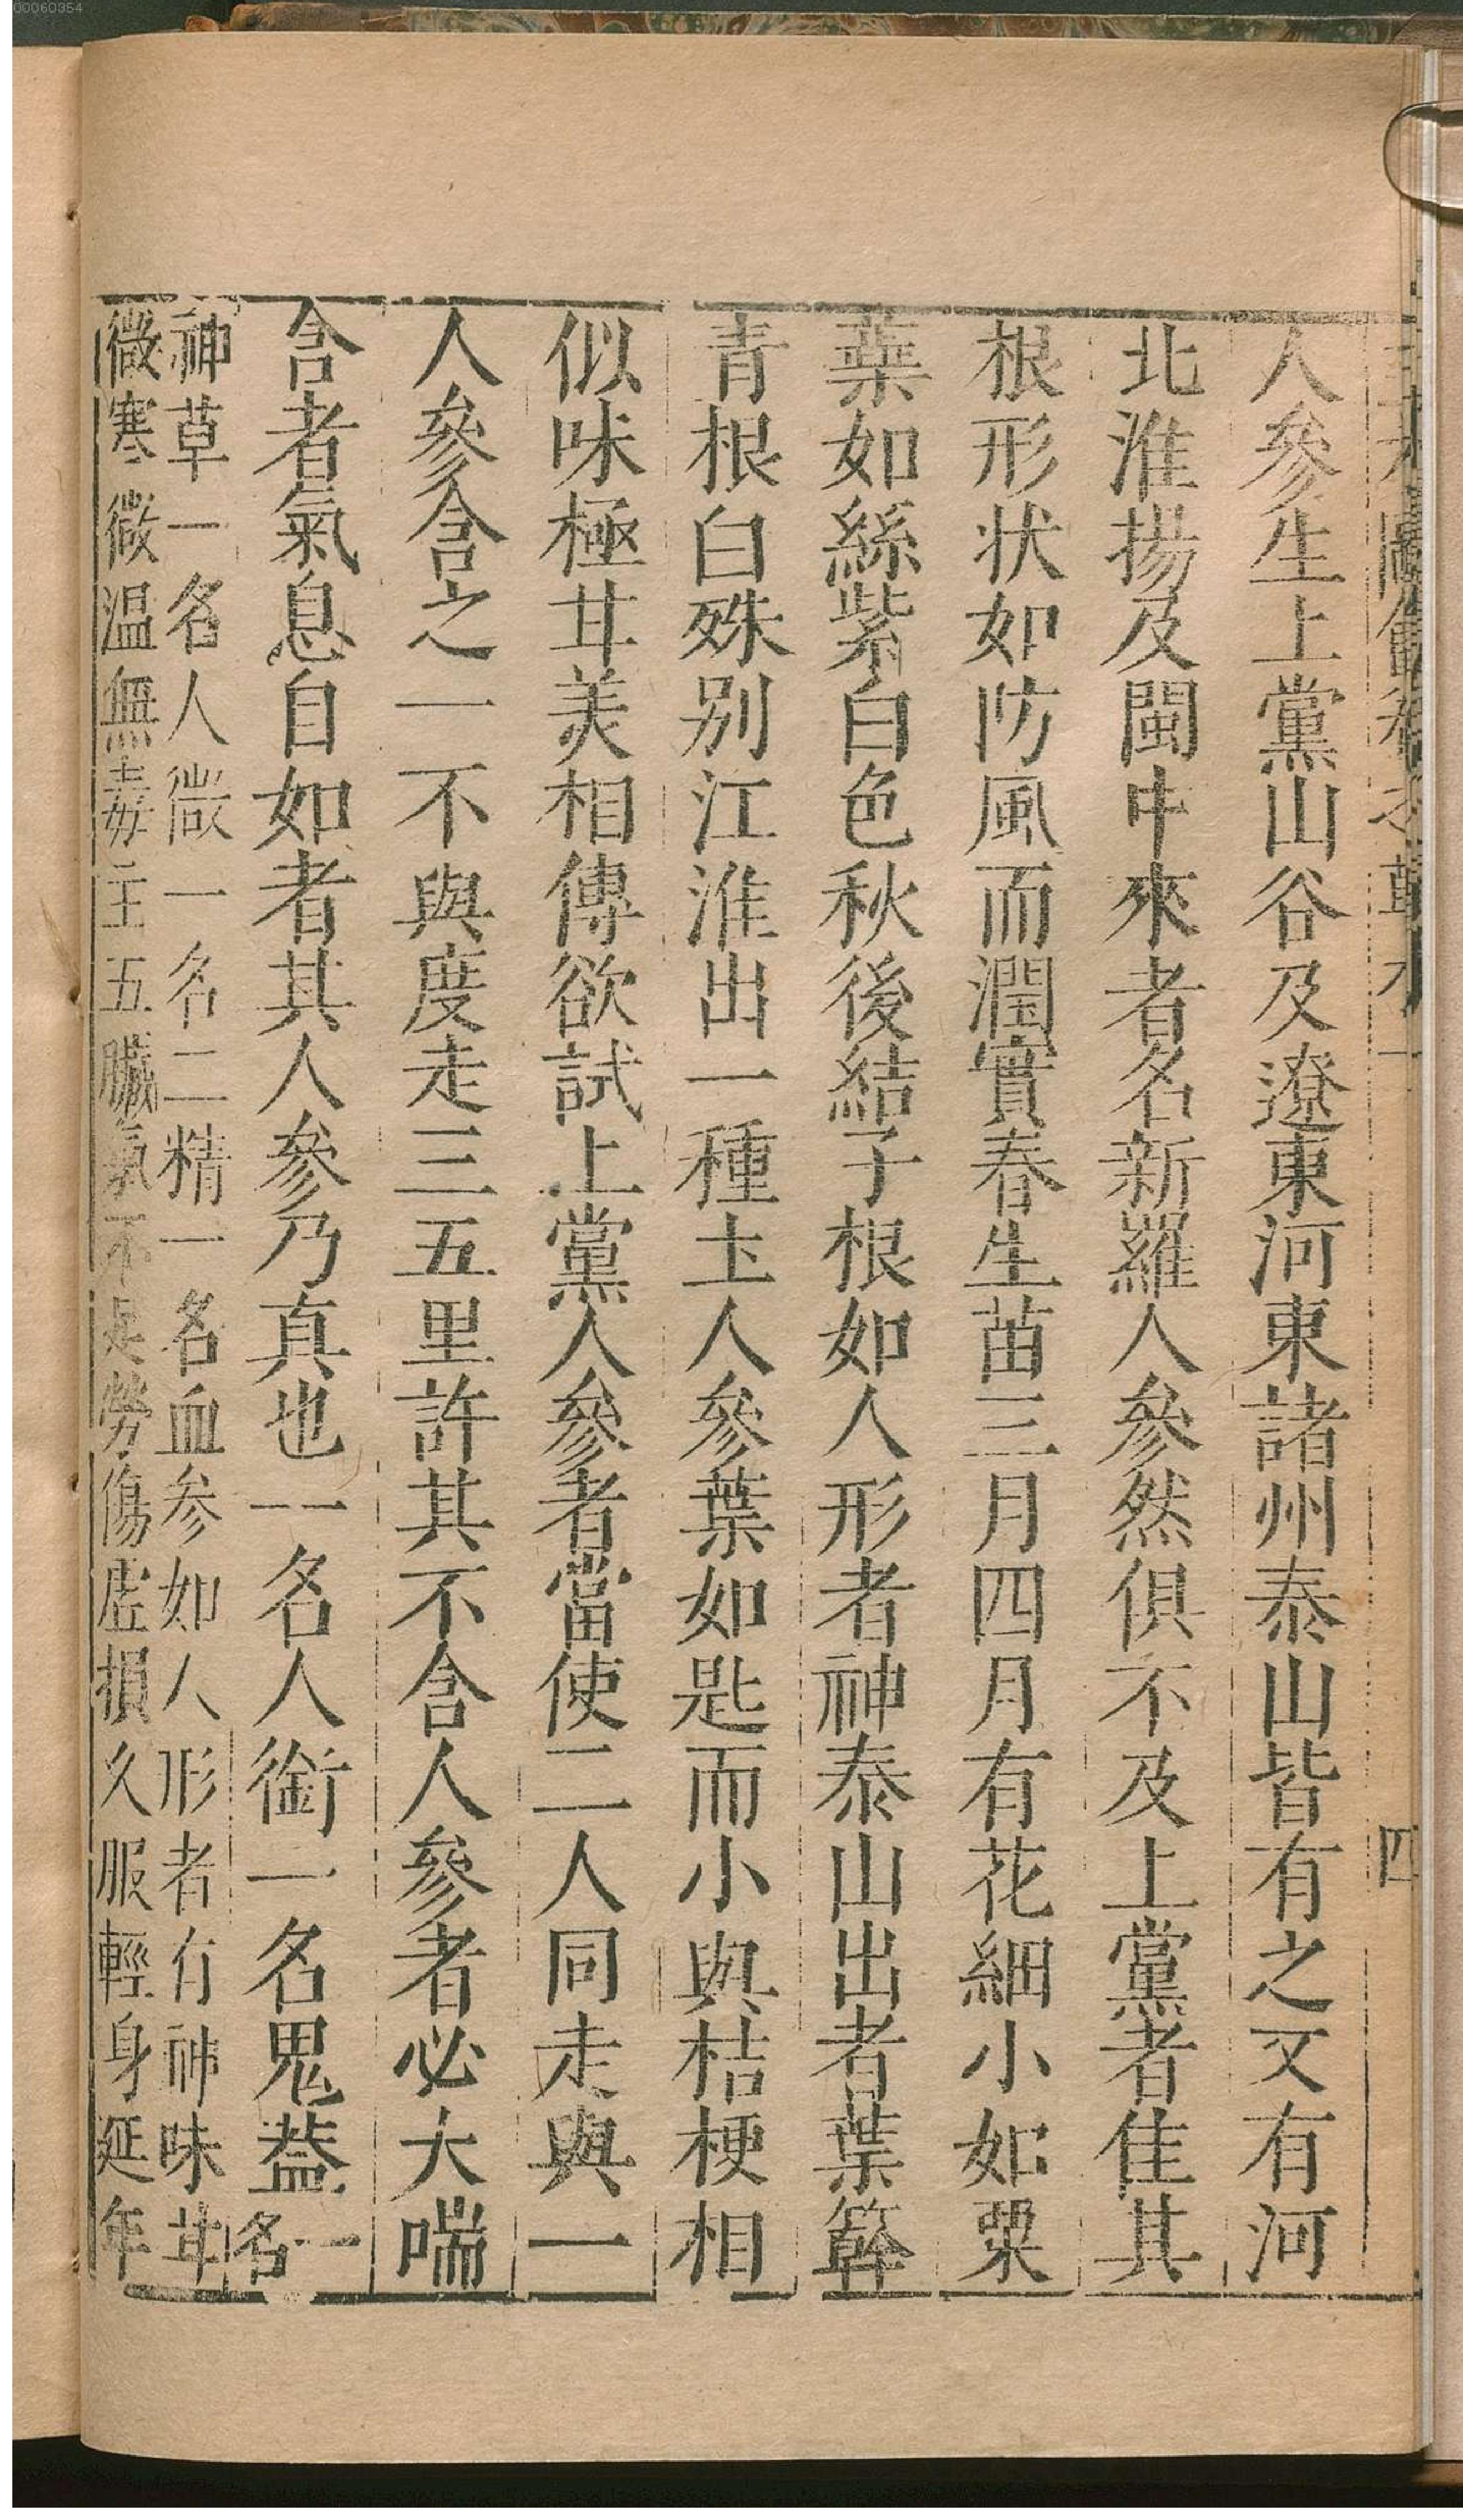 00060354
三才圖會卷之草木一 四
人參生上黨山谷及遼東河東諸州泰山皆有之又有河
北淮揚及閩中來者名新羅人參然俱不及上黨者佳其
根形状如防風而潤實春生苗三月四月有花細小如粟
蘂如絲紫白色秋後結子根如人形者神泰山出者葉簳
青根白殊別江淮出一種土人參葉如匙而小與桔梗相
似味極甘美相傳欲試上黨人參者當使二人同走與一
人參含之一不與度走三五里許其不含人參者必大喘
含者氣息自如者其人參乃真也一名人銜一名鬼蓋一名
神草一名人微一名二精一名血参如人形者有神味甘
微寒微温無毒主五臟氣不足勞傷虛損久服輕身延年